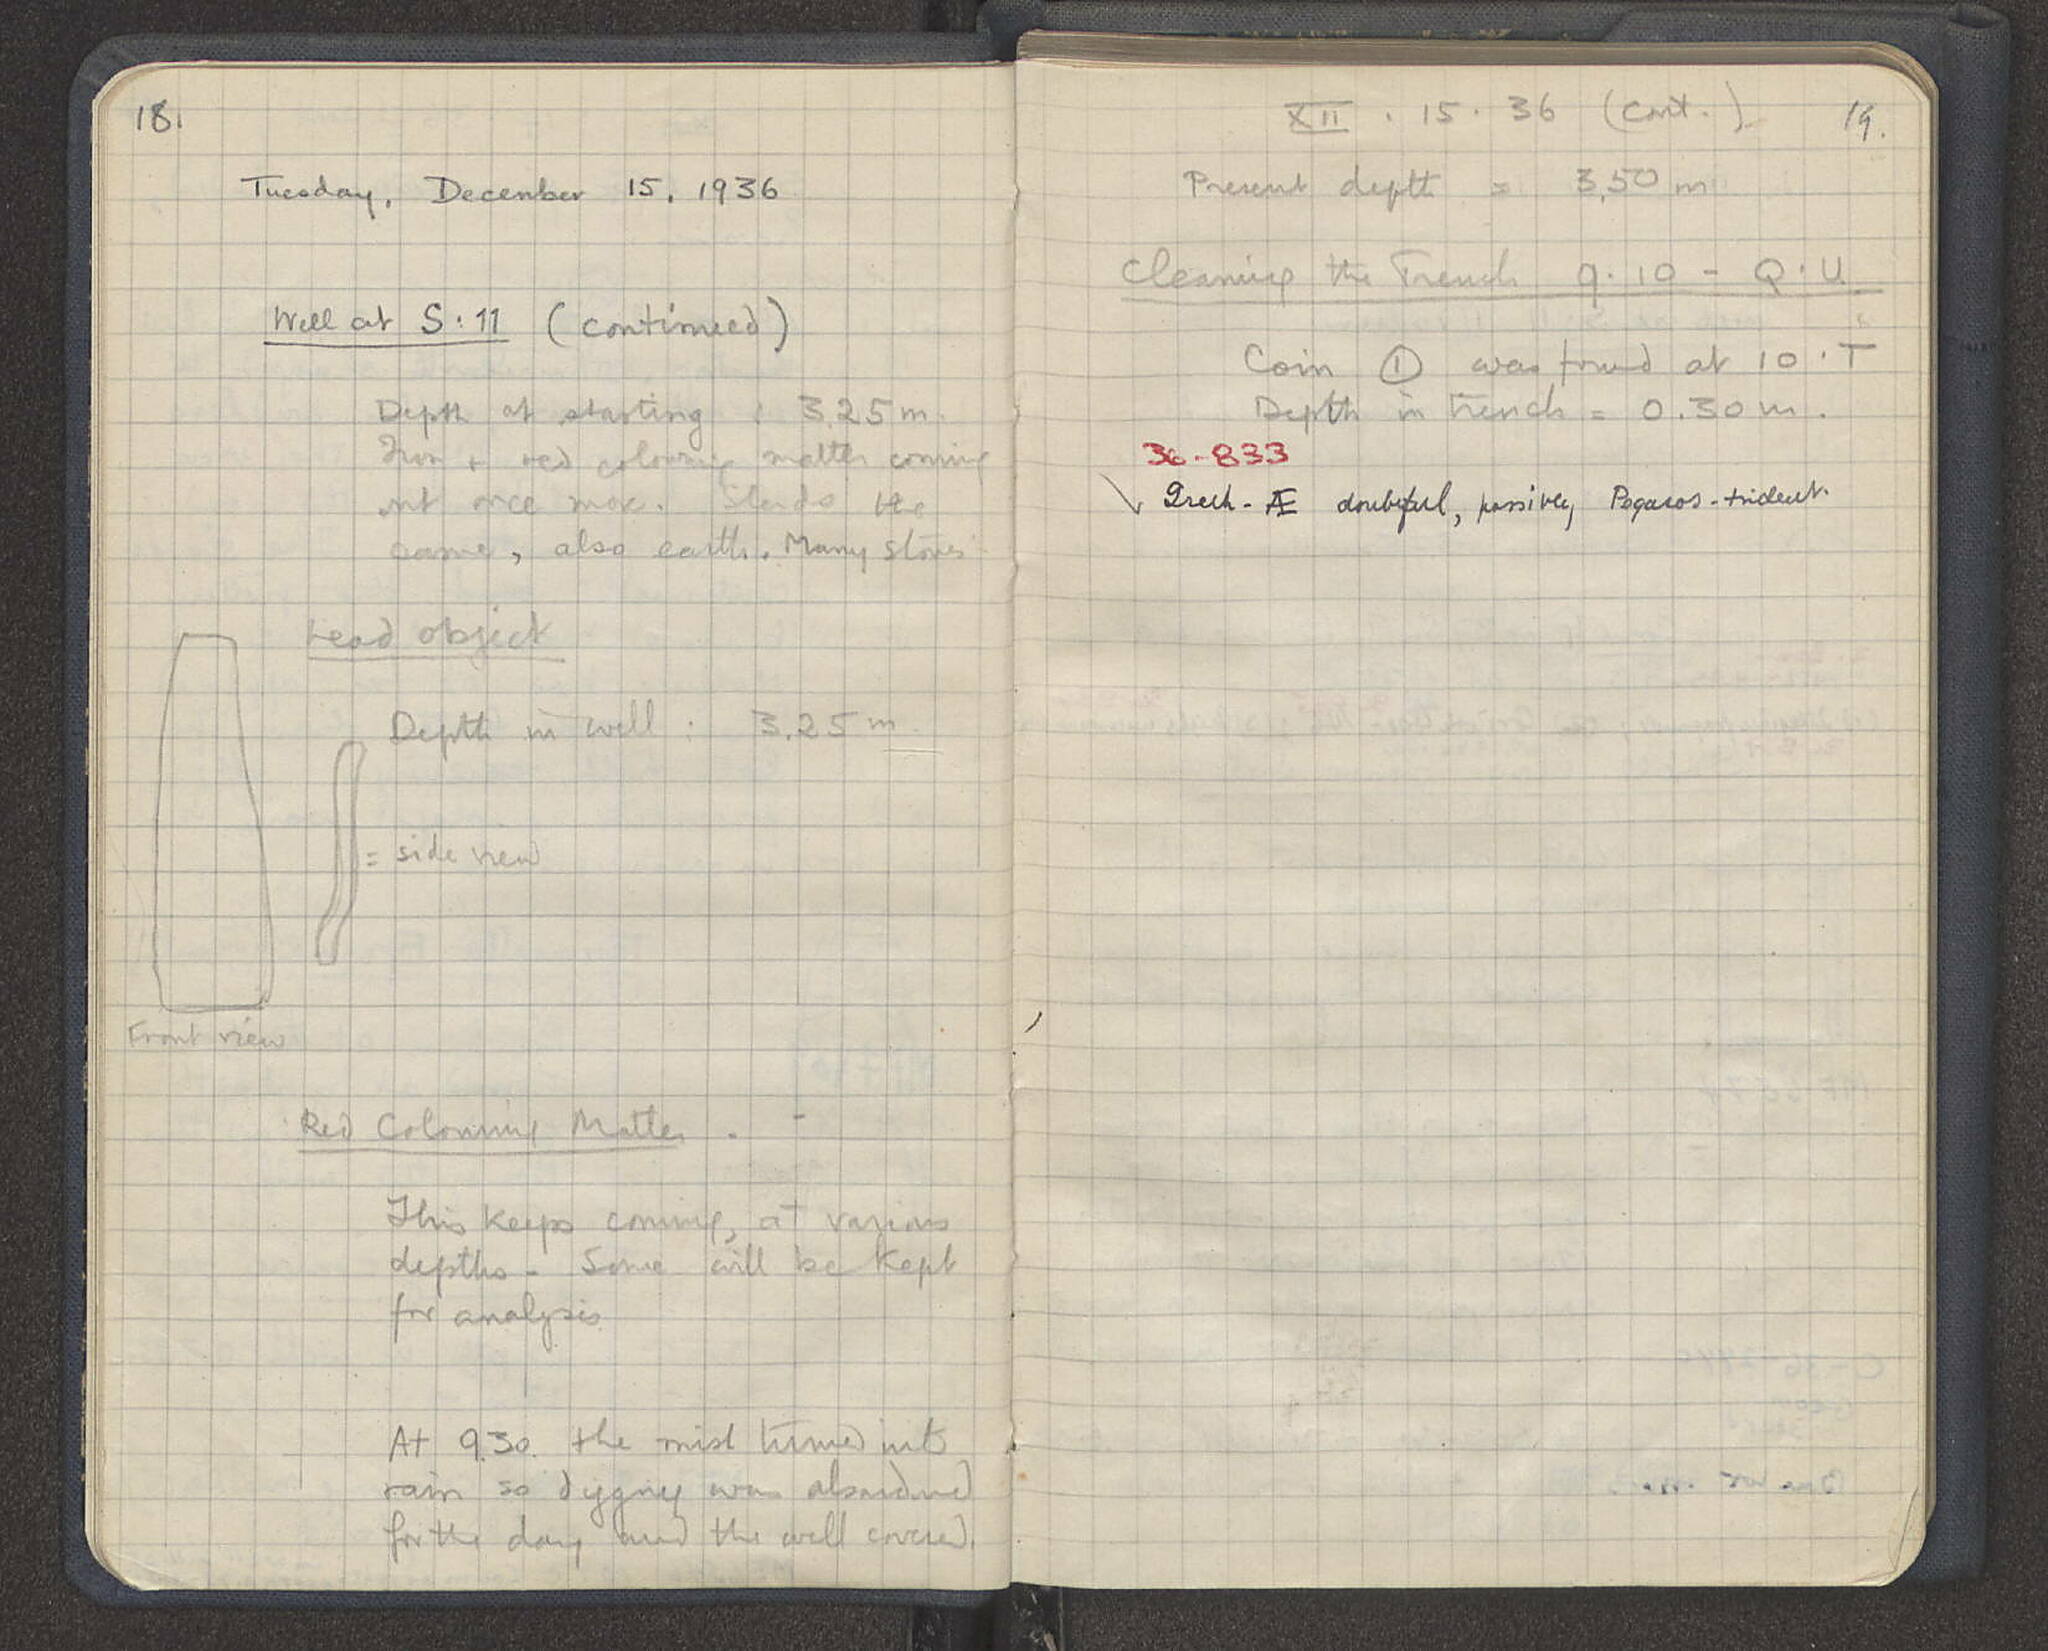 18.
Tuesday, December 15, 1936
Well at S:11 (continued)
Depth at starting : 3.25 m.
Iron + red colouring matter coming
out once more. Sherds the
same, also earth. Many stones
Lead object
Depth in well : 3.25 m.
= side view
Front view
Red Colouring Matter . -
This keeps coming, at various
depths - Some will be kept
for analysis.
At 9.30 the mist turned into
rain so digging was abandoned
for the day and the well covered.
XII . 15 . 36 (cont.)
19.
Present depth = 3.50 m
Cleaning the Trench 9.10 - Q.U
Coin ① was found at 10.T
Depth in trench = 0.30 m.
36-833
Greek - Æ doubtful, possibly Pegasos-trident.